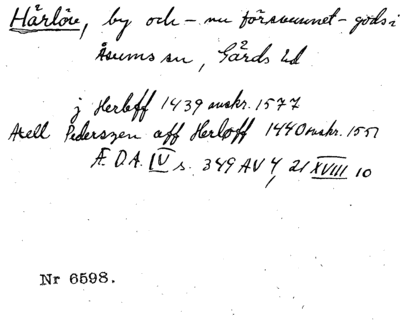 Härlöv, by och - nu försvunnet - gods i
Åsums sn, Gärds hd
j Herleff 1439 avskr. 1577
Axell Pederszen aff Herloff 1440 avskr. 1551
Æ.D.A. IV s. 349 AV 4, 21 XVIII 10
Nr 6598.